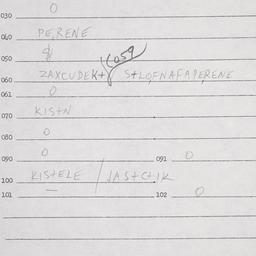 030 0
040 PE,RENE
050
060 ZAXCUDEK+ S+LQFNAFAPERENE
061 0
070 KIS+N
080 0
090 0 091 0
100 KIS+ELE / JAS+C+IK
101 — 102 0